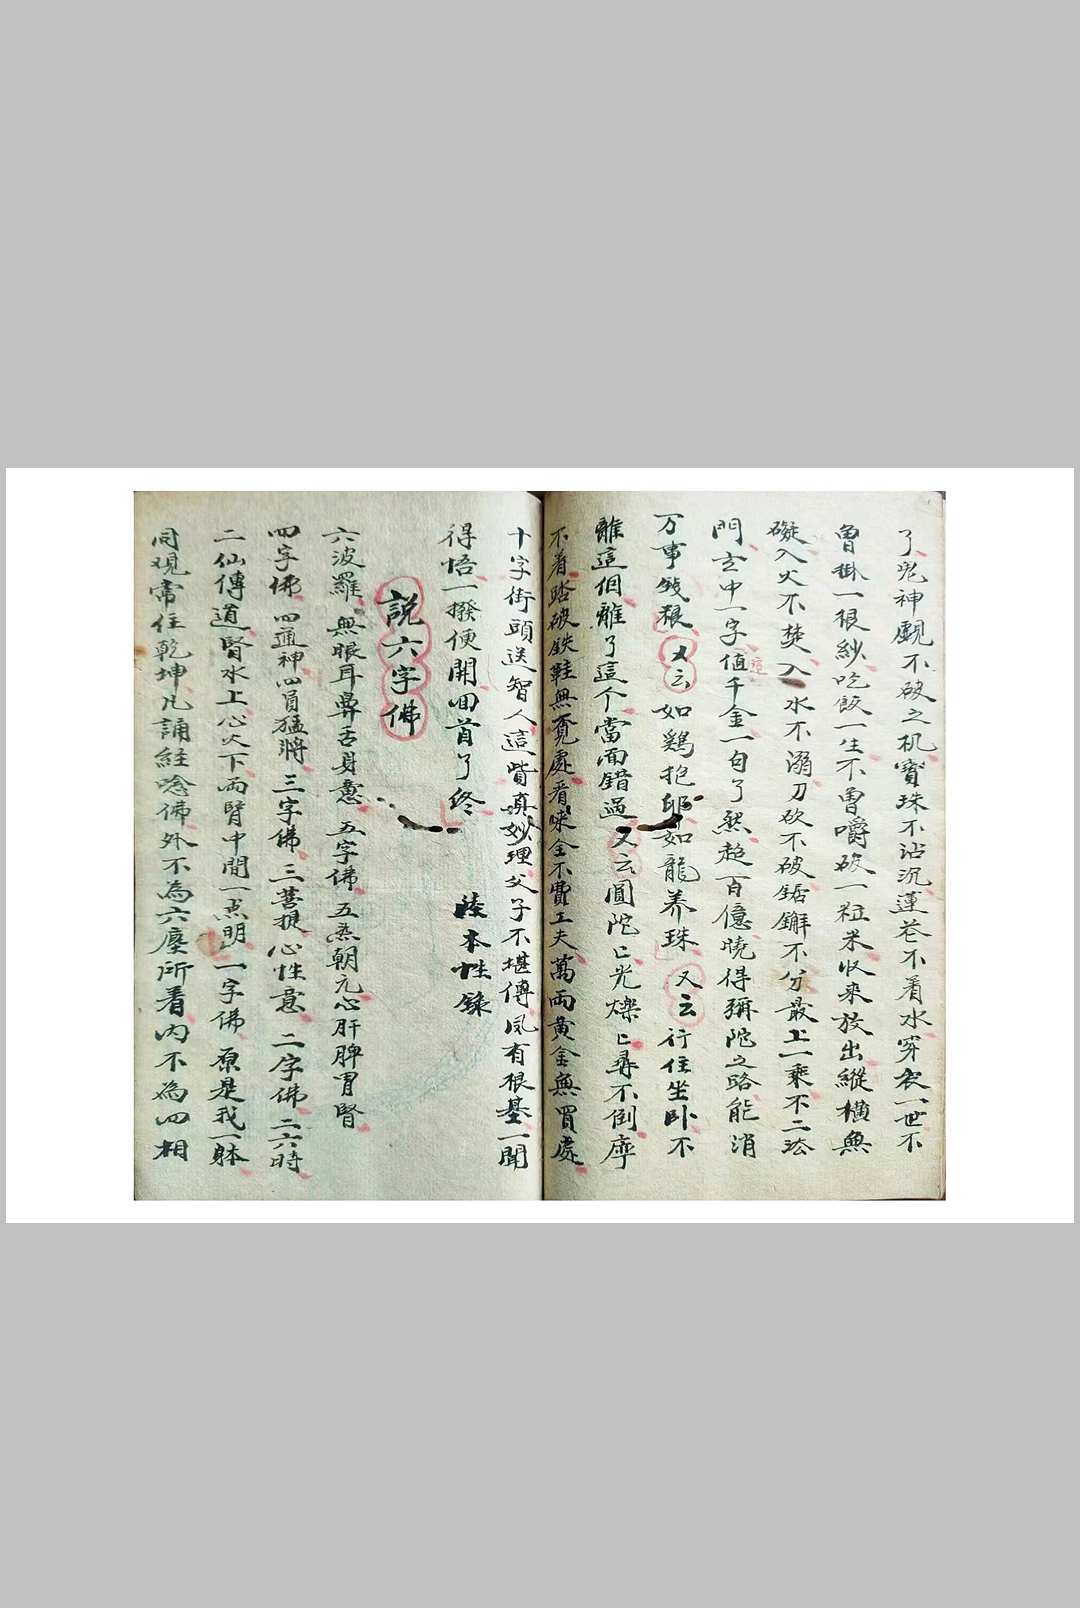 了鬼神覷不破之机寶珠不沾沉蓮巷不看水穿衣一世不
曾掛一根紗吃飯一生不曾嚼破一粒米收来放出縱橫無
礙入火不焚入水不溺刀砍不破鋸觧不分最上一乘不二法
門玄中一字值這千金一句了然超百億曉得彌陀之路能消
万事錢粮 又云如鷄抱卵如龍养珠 又云行住坐卧不
離這個離了這个當面錯過又云圓陀匕光爍匕尋不倒摩
不着踏破鉄鞋無覓處看來全不費工夫萬両黄金無買處
十字街頭送智人這貲真妙理父子不堪傳凡有根基一聞
得悟一撥便開回首了終 陸本性錄
説六字佛
六波羅無眼耳鼻舌身意 五字佛 五炁朝元心肝脾胃腎
四字佛 四通神四員猛將 三字佛 三菩提心性意 二字佛 二六時
二仙傳道腎水上心火下両腎中間一点明 一字佛 原是我一躰
同观常住乾坤凡誦経唸佛外不為六塵所着内不為四相